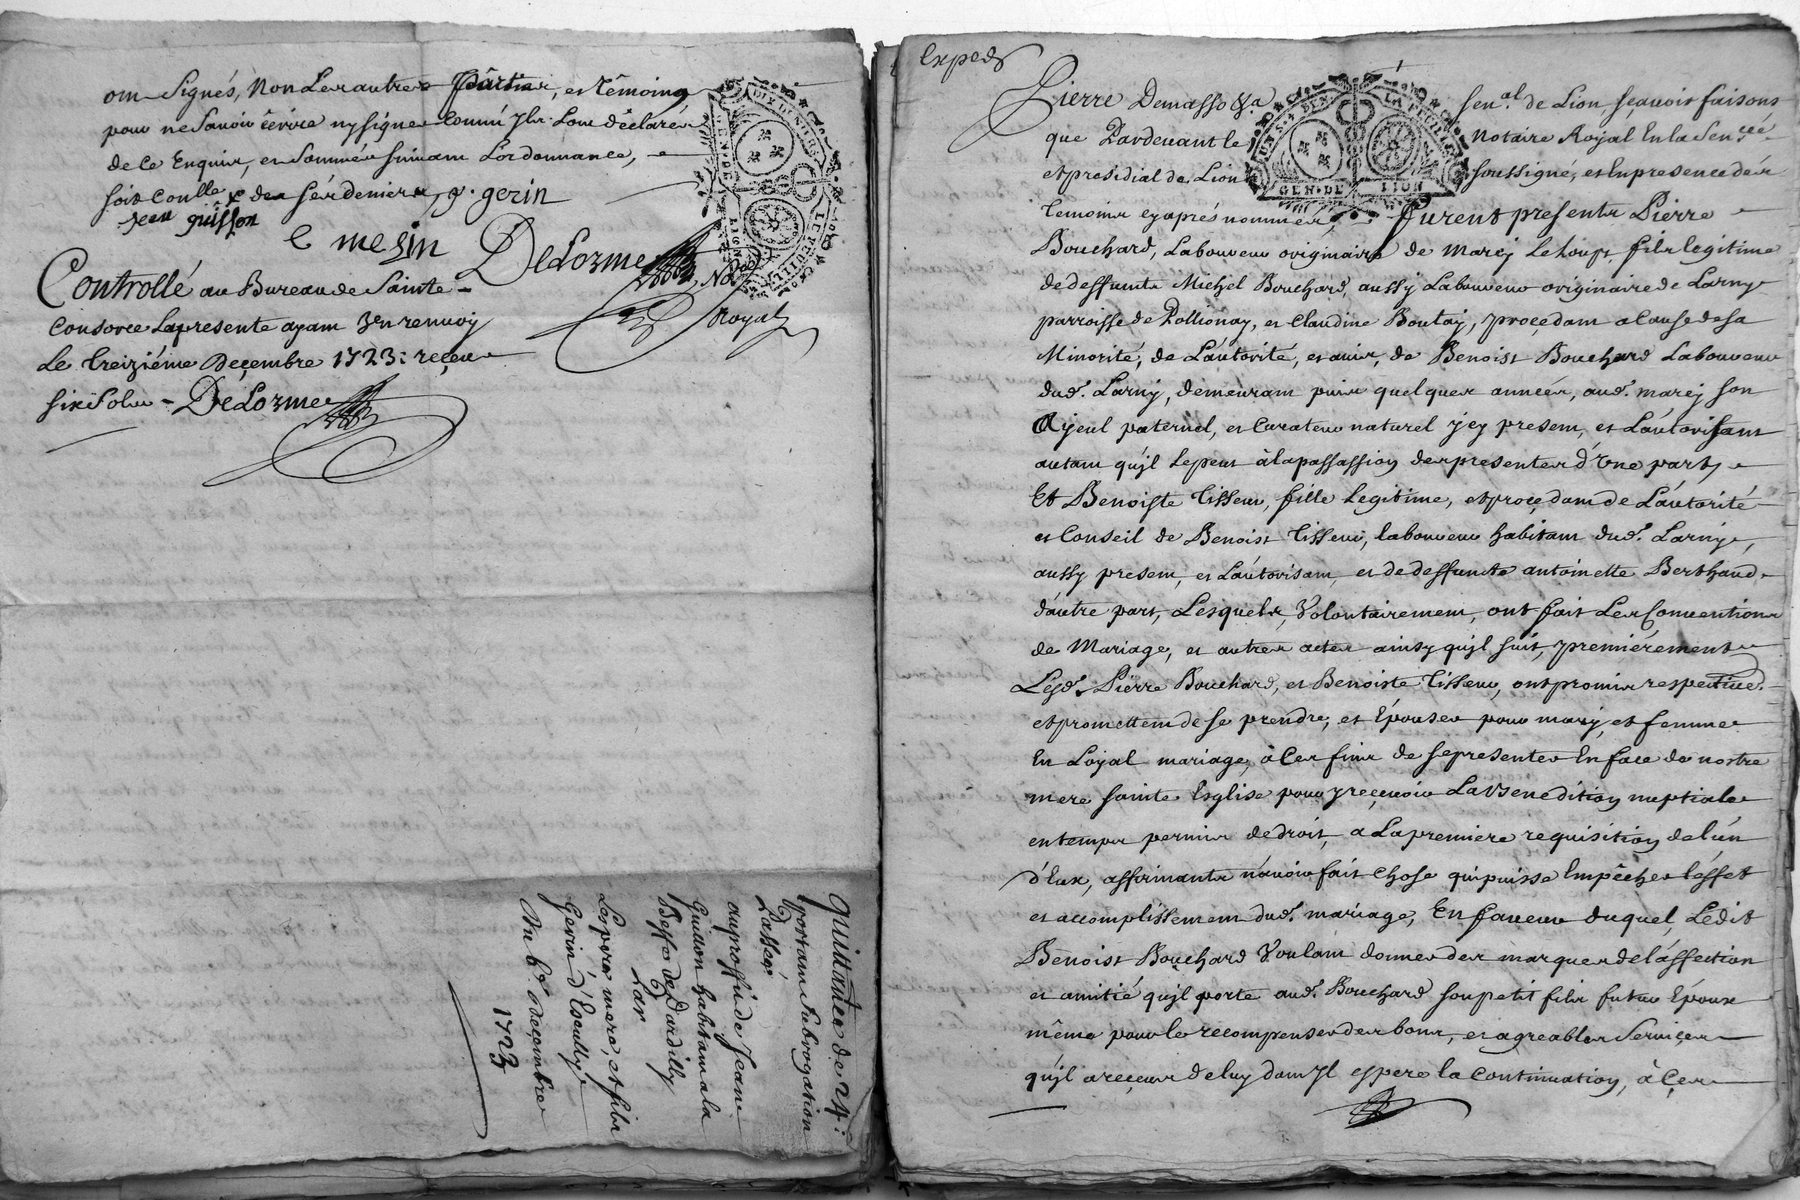 ont Signés, Non Les autres Parties, et têmoins
pour ne Scavoir êcrire ny signer Comme Ils ont dêclaré
de ce Enquis, et Sommés suivant Lordonnance,
soit Conllé & des sés deniers, g. gerin
Jean guisson
C mesin Delorme No.re
Royal
Controllé au Bureau de Sainte
Consorce La presente ayant renvoy
Le treiziême Deçembre 1723: reçeu
six Sols Delorme
quittance de 24:
portant Subrogation
Passée
au proffit de Jeane
Guillon habitant a la
Beffe de Dardilly
Par
Lepere mere, et fils
Gerin d'Escully
Du 6e decembre
1723
Exped
Pierre Demasso &a sen.al de Lion, sçavoir faisons
que Pardevant le Notaire Royal En la Sen.cée
et presidial de Lion soussigné, et En presence des
temoins cy aprés nommés, furent presents Pierre
Bouchard, Laboureur originaire de Marcy Le Loup, fils legitime
de deffunts Michel Bouchard, aussy Laboureur originaire de Larny
parroisse de Pollionay, et Claudine Boutay, proçedant a Cause de sa
Minorité, de L'autorité, et avis, de Benoist Bouchard Laboureur
dud. Larny, demeurant puis quelques années, aud. marcy son
Ayeul paternel, et Curateur naturel jcy present, et L'autorisant
autant qu'jl Le peut à la passassion des presentes d'Vne part,
Et Benoiste Tisseur, fille Legitime, et proçedant de L'autorité
et Conseil de Benoist Tisseur, laboureur habitant dud. Larny,
aussy present, et L'autorisant, et de deffuncte antoinette Berthaud
d'autre part, Lesquels, Volontairement, ont fait Les Conventions
de Mariage, et autres actes ainsy qu'jl suit, premiérement
Lesd. Pierre Bouchard, et Benoiste Tisseur, ont promis respectived.
et promettent de se prendre, et Epouser pour mary, et femme
En Loyal mariage, à Ces fins de se presenter En face de nostre
mere sainte Esglise pour y reçevoir La Benedition nuptiale
en temps permis de droit, a La premiere requisition de l'un
d'Eux, affirmants n'avoir fait Chose qui puisse Empêcher L'effet
et accomplissement dud. mariage, En faveur duquel, Ledit
Benoist Bouchard Voulant donner des marques de l'affection
et amitié qu'jl porte aud. Bouchard son petit fils futur Epoux
même pour le recompenser des bons, et agreables Serviçes
qu'jl a reçeus de luy dont Jl espere la Continuation, à Çes